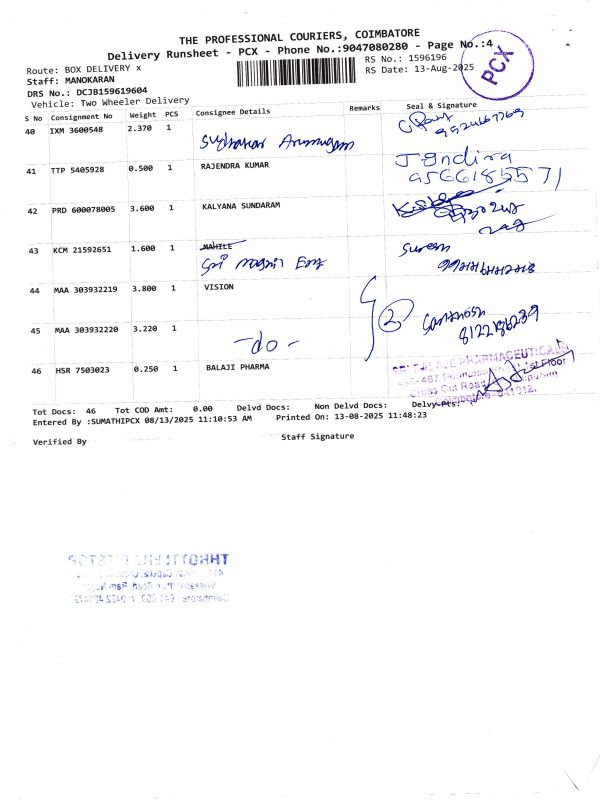 THE PROFESSIONAL COURIERS, COIMBATORE
Delivery Runsheet - PCX - Phone No.:9047080280 - Page No.:4
PCX
Route: BOX DELIVERY x
RS No.: 1596196
Staff: MANOKARAN
RS Date: 13-Aug-2025
DRS No.: DCJB159619604
Vehicle: Two Wheeler Delivery
S No Consignment No Weight PCS Consignee Details Remarks Seal & Signature
40 IXM 3600548 2.370 1
Sudhakar Arumugam
41 TTP 5405928 0.500 1 RAJENDRA KUMAR J Indira
9566185571
42 PRD 600078005 3.600 1 KALYANA SUNDARAM
43 KCM 21592651 1.600 1 MAHILE
Sri
44 MAA 303932219 3.800 1 VISION
2
8122186239
45 MAA 303932220 3.220 1
-do-
46 HSR 7503023 0.250 1 BALAJI PHARMA
PHARMACEUTICALS
Floor
Cross Cut Road
Tot Docs: 46 Tot COD Amt: 0.00 Delvd Docs: Non Delvd Docs: Delvy Pts:
Entered By :SUMATHIPCX 08/13/2025 11:10:53 AM Printed On: 13-08-2025 11:48:23
Verified By Staff Signature